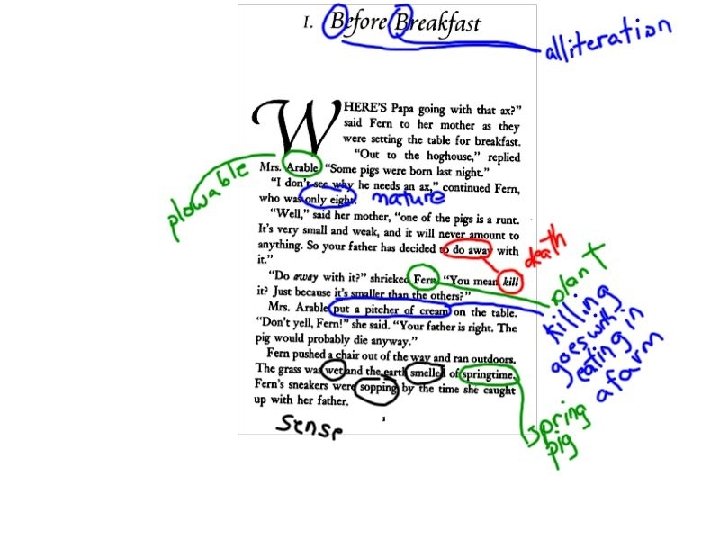 I. Before Breakfast
alliteration
WHERE'S Papa going with that ax?"
said Fern to her mother as they
were setting the table for breakfast.
"Out to the hoghouse," replied
Mrs. Arable. "Some pigs were born last night."
plowable
"I don't see why he needs an ax," continued Fern,
who was only eight.
mature
"Well," said her mother, "one of the pigs is a runt.
It's very small and weak, and it will never amount to
anything. So your father has decided to do away with
it."
death
"Do away with it?" shrieked Fern. "You mean kill
it? Just because it's smaller than the others?"
plant
Mrs. Arable put a pitcher of cream on the table.
"Don't yell, Fern!" she said. "Your father is right. The
pig would probably die anyway."
killing
goes with
eating in
a farm
Fern pushed a chair out of the way and ran outdoors.
The grass was wet and the earth smelled of springtime.
Fern's sneakers were sopping by the time she caught
up with her father.
spring
pig
sense